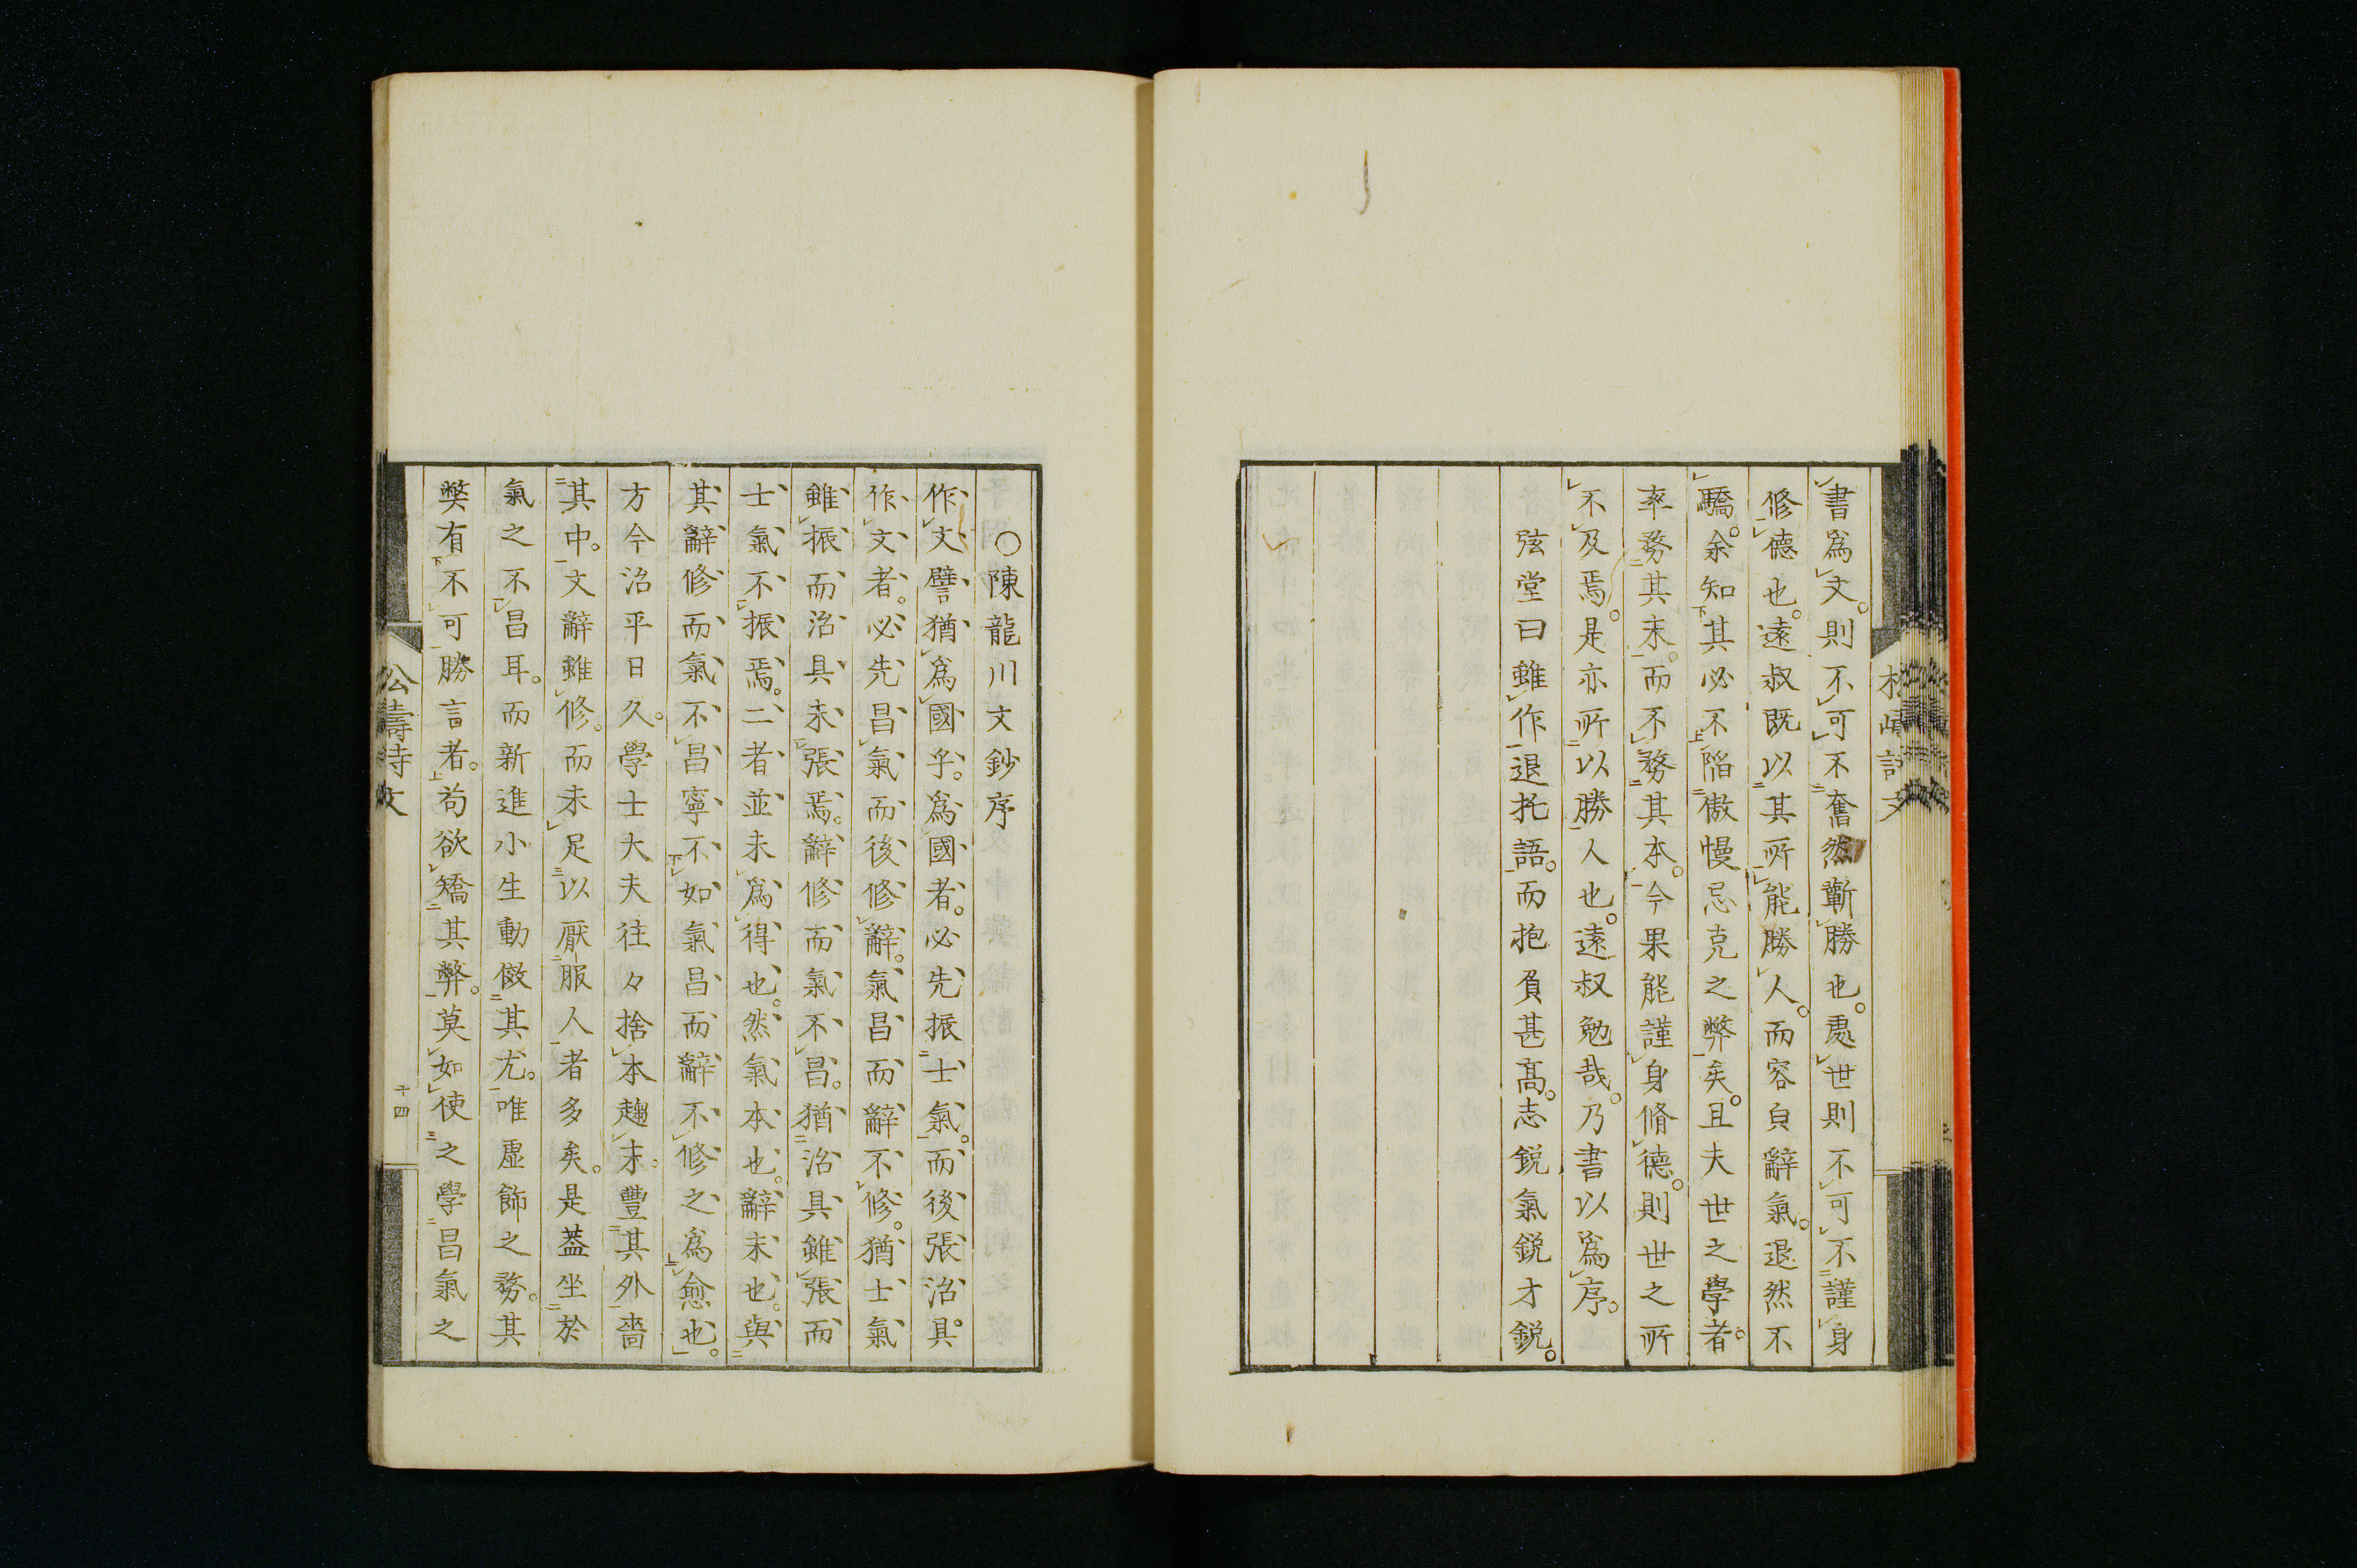 書爲文。則不可不奮然勤勝也。處世則不可不謹身
修德也。遠叔既以其所能勝人。而容皃辭氣。退然不
驕。余知其必不陷傲慢忌克之弊矣。且夫世之學者。
率務其末。而不務其本。今果能謹身脩德。則世之所
不及焉。是亦所以勝人也。遠叔勉哉。乃書以爲序。
弦堂曰雖作退托語。而抱負甚髙。志鋭氣鋭才鋭。
〇陳龍川文鈔序
作文譬猶爲國乎。爲國者。必先振士氣。而後張治具。
作文者。必先昌氣而後修辭。氣昌而辭不修。猶士氣
雖振而治具未張焉。辭修而氣不昌。猶治具雖張而
士氣不振焉。二者並未爲得也。然氣本也。辭末也。與
其辭修而氣不昌寧不如氣昌而辭不修之爲愈也。
方今治平日久。學士大夫往々捨本趨末。豐其外嗇
其中。文辭雖修。而未足以厭服人者多矣。是葢坐於
氣之不昌耳。而新進小生動傚其尤。唯虛飾之務。其
獘有不可勝言者。苟欲矯其弊。莫如使之學昌氣之
十四